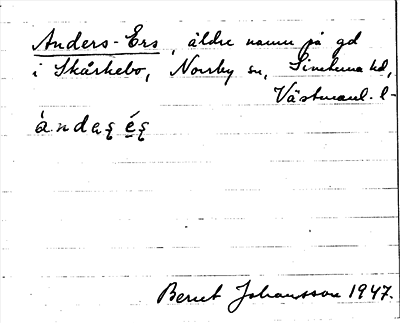 Anders-Ers, äldre namn på gd
i Skårhebo, Norrby sn, Simtuna hd,
Västmanl. l-
àndaʂ éʂ
Bernt Johansson 1947.